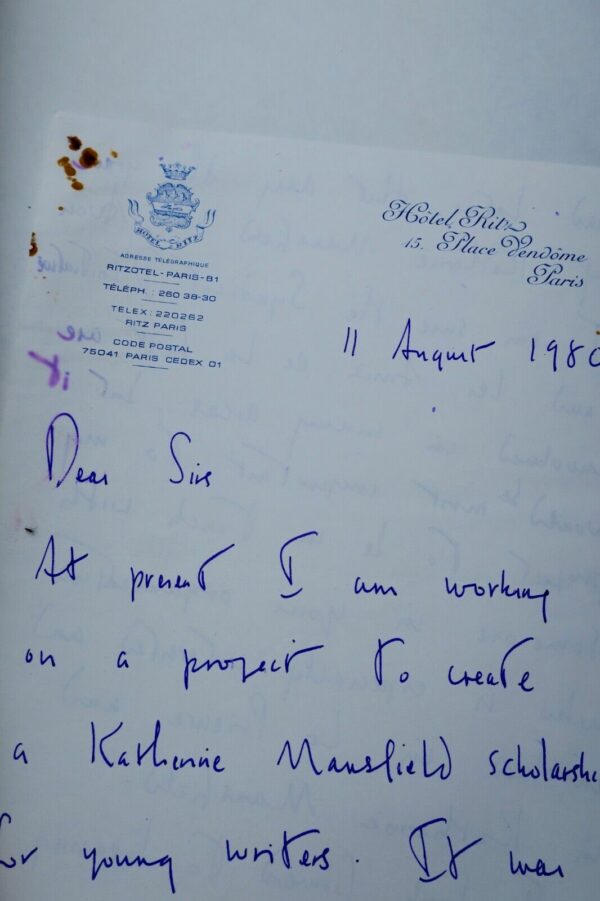 HOTEL RITZ
ADRESSE TÉLÉGRAPHIQUE
RITZOTEL-PARIS-81
TÉLÉPH. : 260 38-30
TELEX: 220262
RITZ PARIS
CODE POSTAL
75041 PARIS CEDEX 01
Hôtel Ritz
15, Place Vendôme
Paris
11 August 1980
Dear Sirs
At present I am working
on a project to create
a Katherine Mansfield scholarshi
for young writers. It was